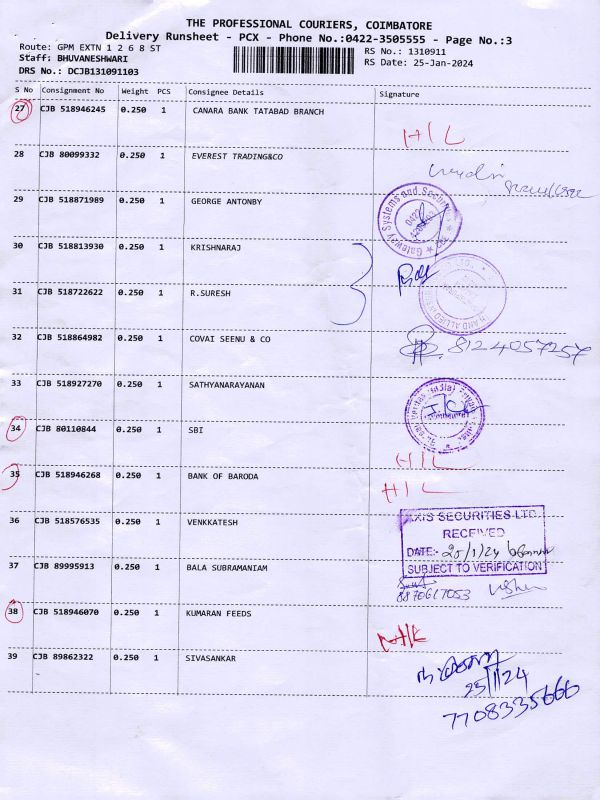 THE PROFESSIONAL COURIERS, COIMBATORE
Delivery Runsheet - PCX - Phone No.:0422-3505555 - Page No.:3
Route: GPM EXTN 1 2 6 8 ST
Staff: BHUVANESHWARI
DRS No.: DCJB131091103
RS No.: 1310911
RS Date: 25-Jan-2024
S No Consignment No Weight PCS Consignee Details Signature
27 CJB 518946245 0.250 1 CANARA BANK TATABAD BRANCH
H/L
28 CJB 80099332 0.250 1 EVEREST TRADING&CO
29 CJB 518871989 0.250 1 GEORGE ANTONBY
Gateway Systems and
0422
30 CJB 518813930 0.250 1 KRISHNARAJ
31 CJB 518722622 0.250 1 R.SURESH
AND ALLIED
32 CJB 518864982 0.250 1 COVAI SEENU & CO
8124057257
33 CJB 518927270 0.250 1 SATHYANARAYANAN
34 CJB 80110844 0.250 1 SBI
H/L
35 CJB 518946268 0.250 1 BANK OF BARODA
H/L
36 CJB 518576535 0.250 1 VENKKATESH
AXIS SECURITIES LTD.
RECEIVED
DATE:- 25/1/24
SUBJECT TO VERIFICATION
37 CJB 89995913 0.250 1 BALA SUBRAMANIAM
8870617053
38 CJB 518946070 0.250 1 KUMARAN FEEDS
39 CJB 89862322 0.250 1 SIVASANKAR
25/1/24
7708335666